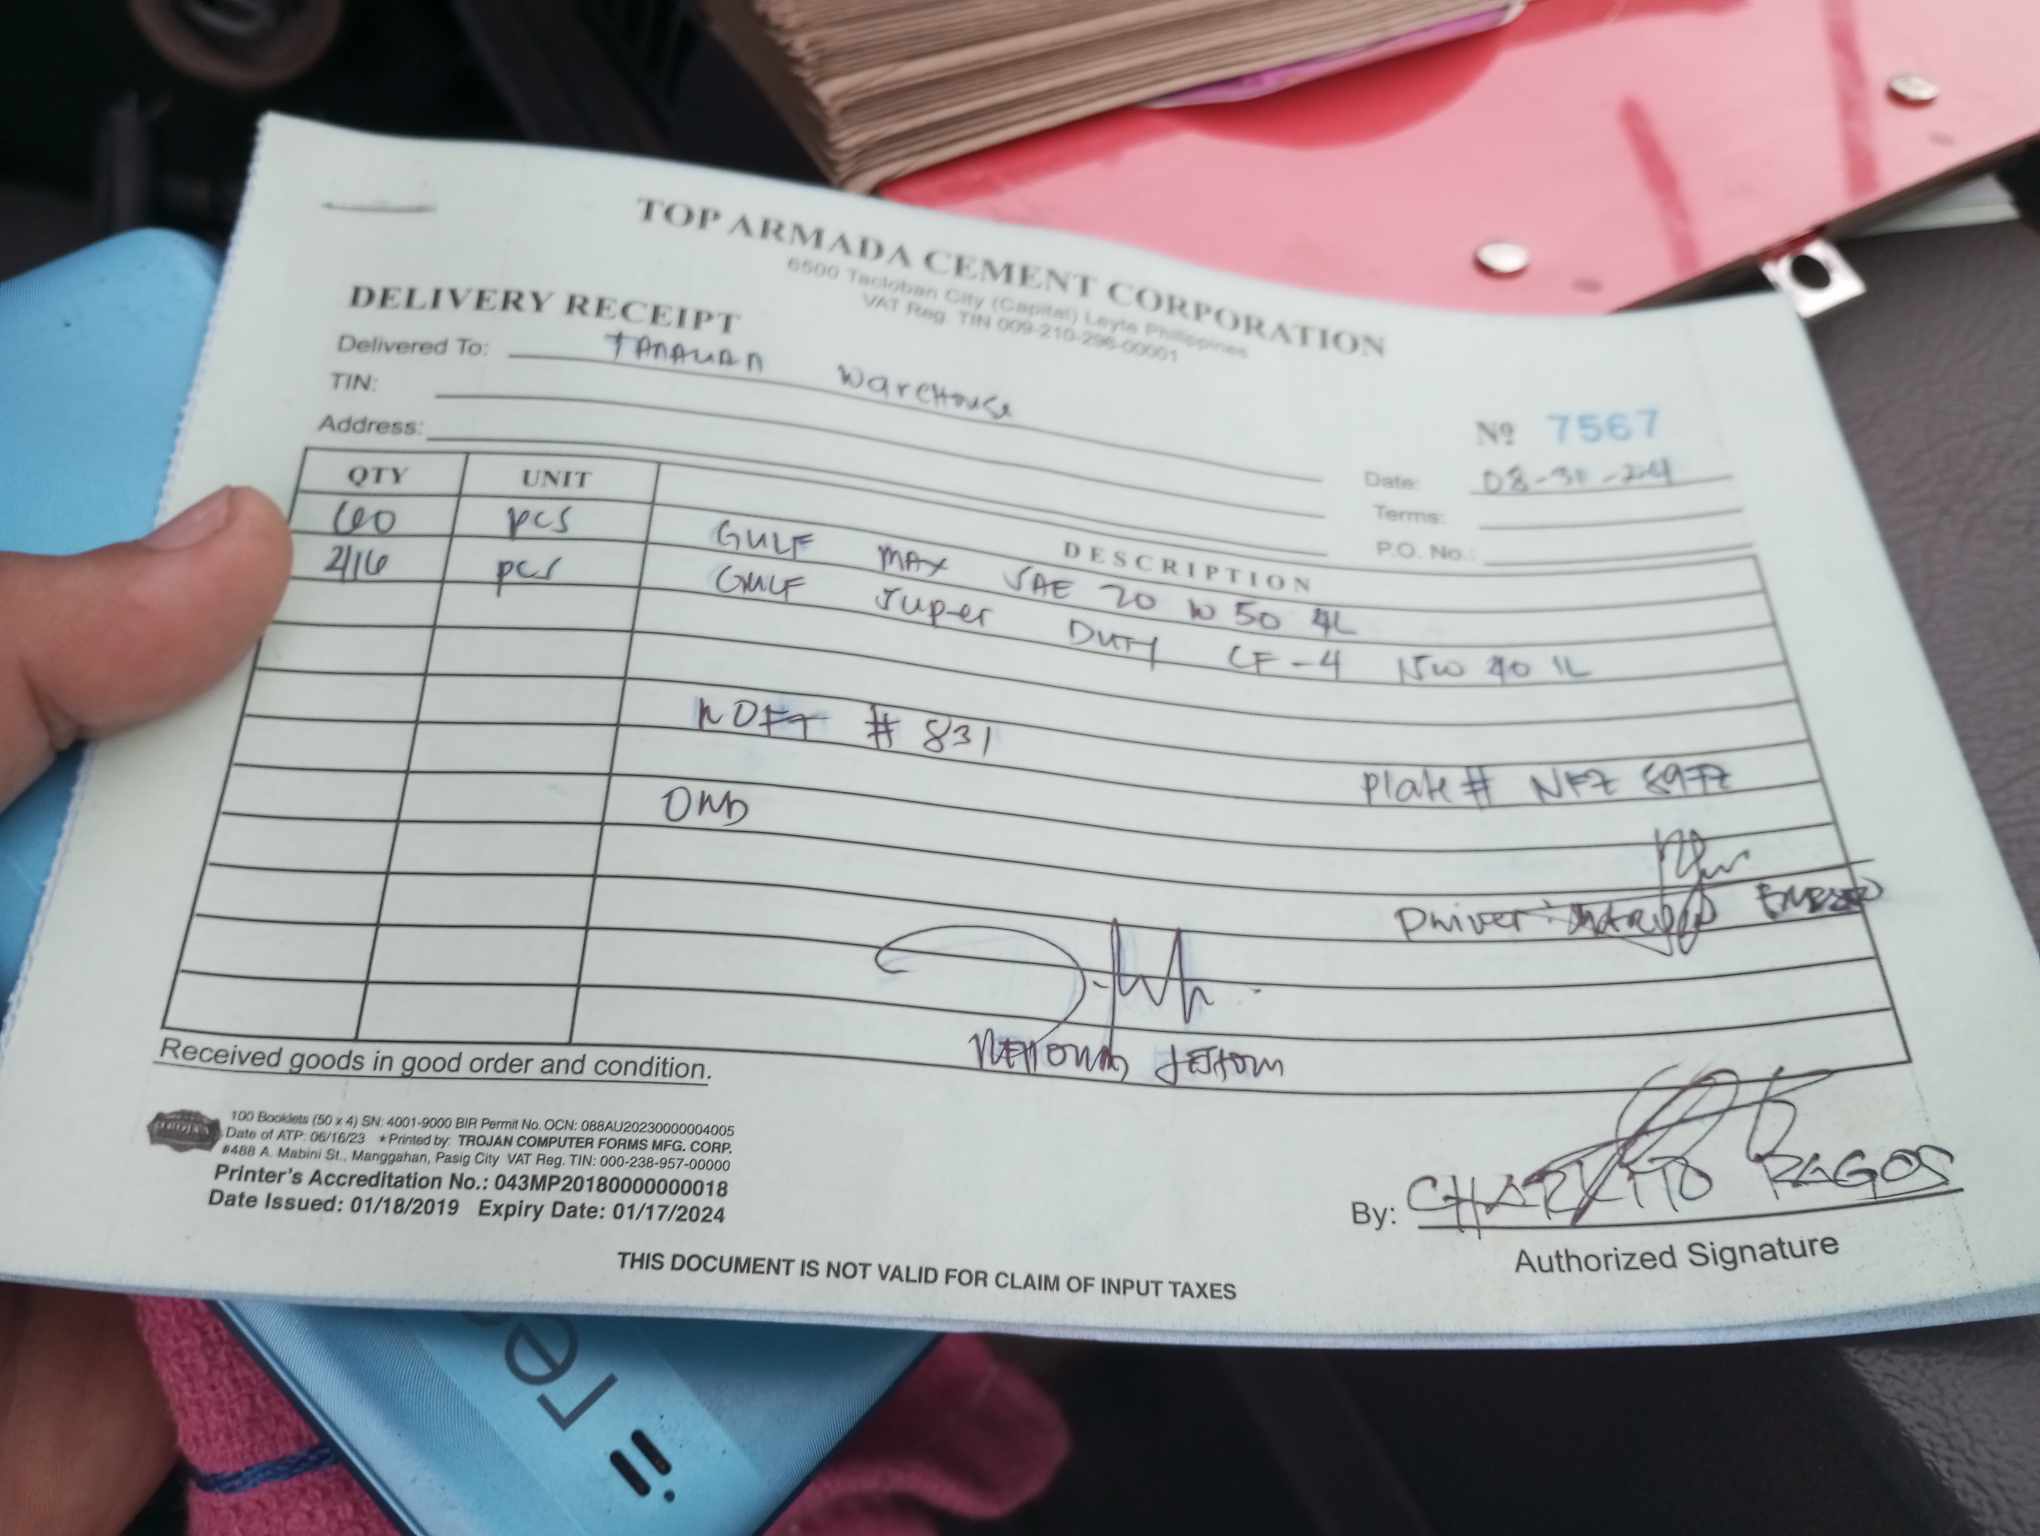 TOP ARMADA CEMENT CORPORATION
6500 Tacloban City (Capital) Leyte Philippines
VAT Reg. TIN 009-210-296-00001
DELIVERY RECEIPT
Delivered To: TANAUAN WAREHOUSE
TIN:
Address:
Nº 7567
Date: 08-30-24
Terms:
P.O. No.:
QTY UNIT DESCRIPTION
pcs GULF MAX SAE 20 W 50 4L
pcs GULF super DUTY CF-4 15W 40 1L
# 831
Plate # NFZ 8977
Driver:
Received goods in good order and condition.
TROJAN
100 Booklets (50 x 4) SN: 4001-9000 BIR Permit No. OCN: 088AU20230000004005
Date of ATP: 06/16/23 ★Printed by: TROJAN COMPUTER FORMS MFG. CORP.
#488 A. Mabini St., Manggahan, Pasig City VAT Reg. TIN: 000-238-957-00000
Printer's Accreditation No.: 043MP20180000000018
Date Issued: 01/18/2019 Expiry Date: 01/17/2024
By: CHARITO RAGOS
Authorized Signature
THIS DOCUMENT IS NOT VALID FOR CLAIM OF INPUT TAXES